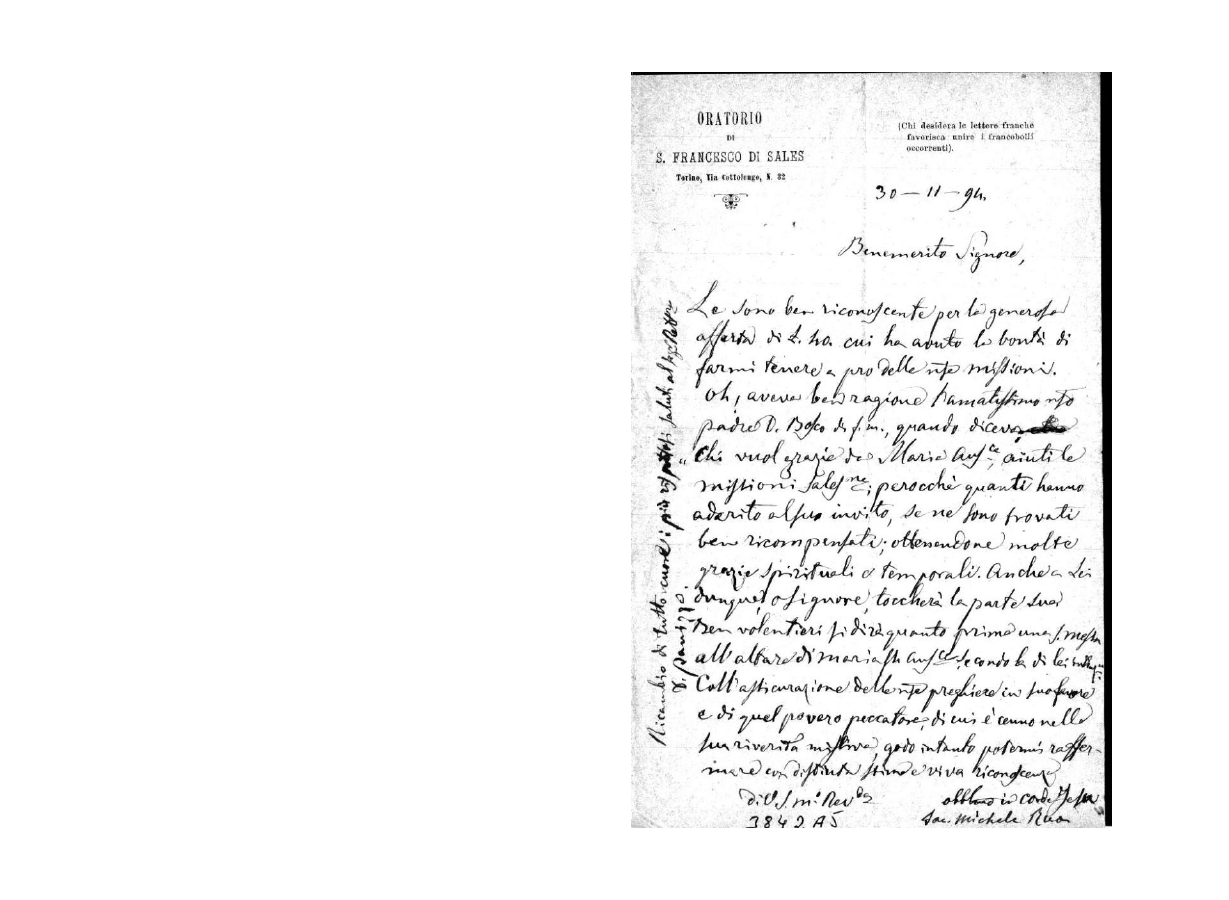 ORATORIO
DI
S. FRANCESCO DI SALES
Torino, Via Cottolengo, N. 32
(Chi desidera le lettere franche
favorisca unire i francobolli
occorrenti).
30 — 11 — 94.
Benemerito Signore,
Le sono ben riconoscente per la generosa
offerta di £. 40. cui ha avuto la bontà di
farmi tenere a pro delle nse missioni.
Oh, aveva ben ragione l'amatissimo nso
padre D. Bosco di f. m., quando diceva
"Chi vuol grazie da Maria Ausce, aiuti le
missioni Salesne; perocchè quanti hanno
aderito al suo invito, se ne sono trovati
ben ricompensati; ottenendone molte
grazie spirituali e temporali. Anche a Lei
dunque, o Signore, toccherà la parte sua
Ben volentieri si dirà quanto prima una s. messa
all'altare di Maria SS Ausce secondo la di lei
Coll'assicurazione delle nse preghiere in suo favore
e di quel povero peccatore, di cui è cenno nella
sua riverita missiva, godo intanto potermi raffer-
mare con distinta stima e viva riconoscenza
di V. S. M. Revda
obbl in Corde Jesu
Sac. Michele Rua
3842 A5
Ricambio di tutto cuore i più rispettosi saluti al